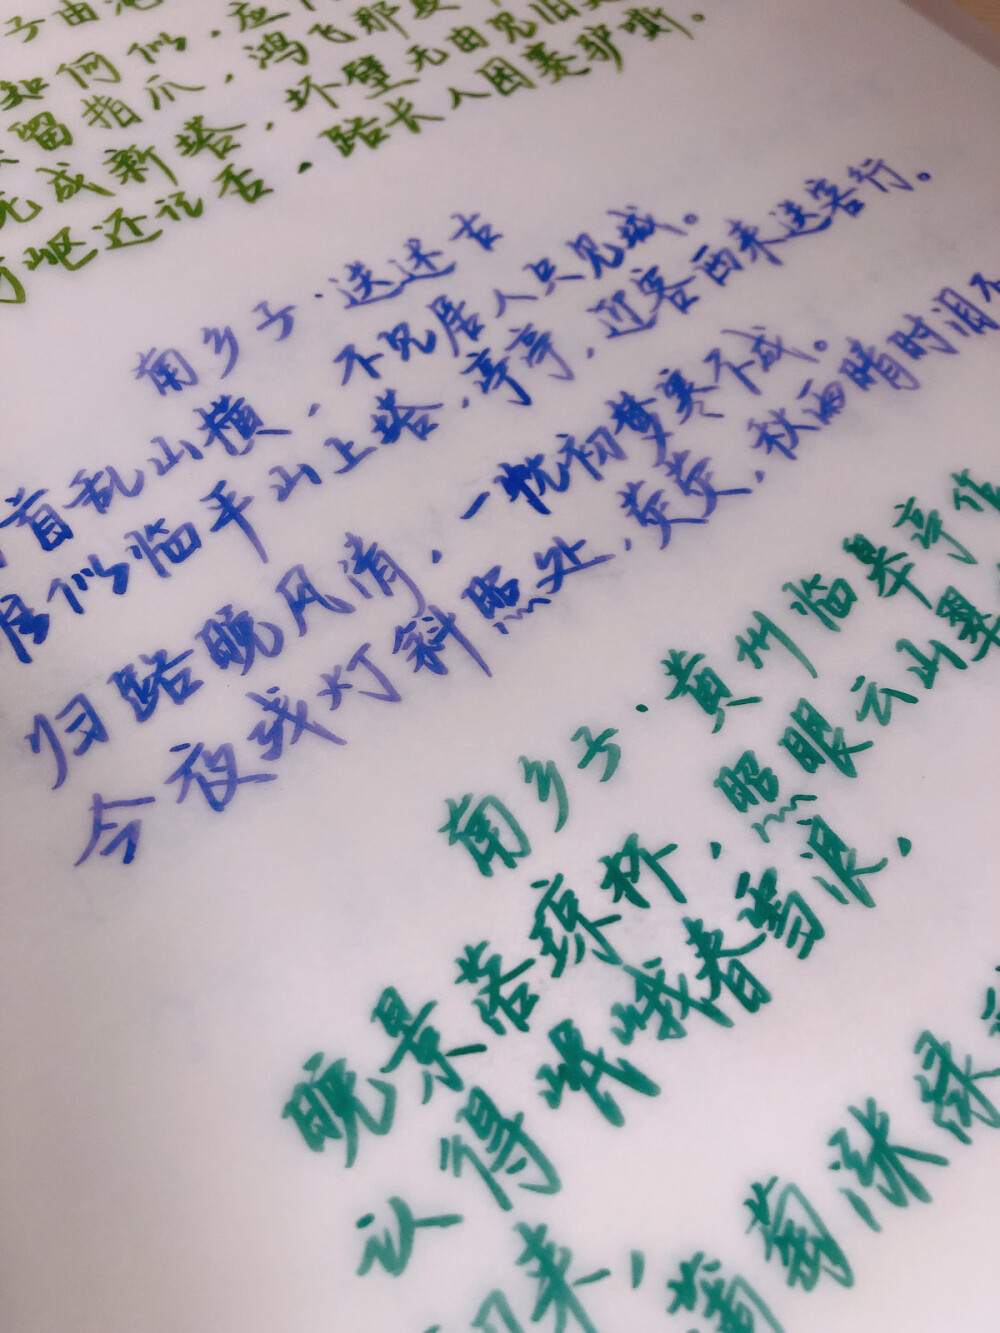 子由渑
知何似，应
留指爪，鸿飞那复
死成新塔，坏壁无由见旧
崎岖还记否，路长人困蹇驴嘶。
南乡子·送述古
首乱山横，不见居人只见城。
谁似临平山上塔，亭亭，迎客西来送客行。
归路晚风清，一枕初寒梦不成。
今夜残灯斜照处，荧荧，秋雨晴时泪不
南乡子·黄州临皋亭作
晚景落琼杯，照眼云山翠
认得岷峨春雪浪，
来，葡萄涨绿